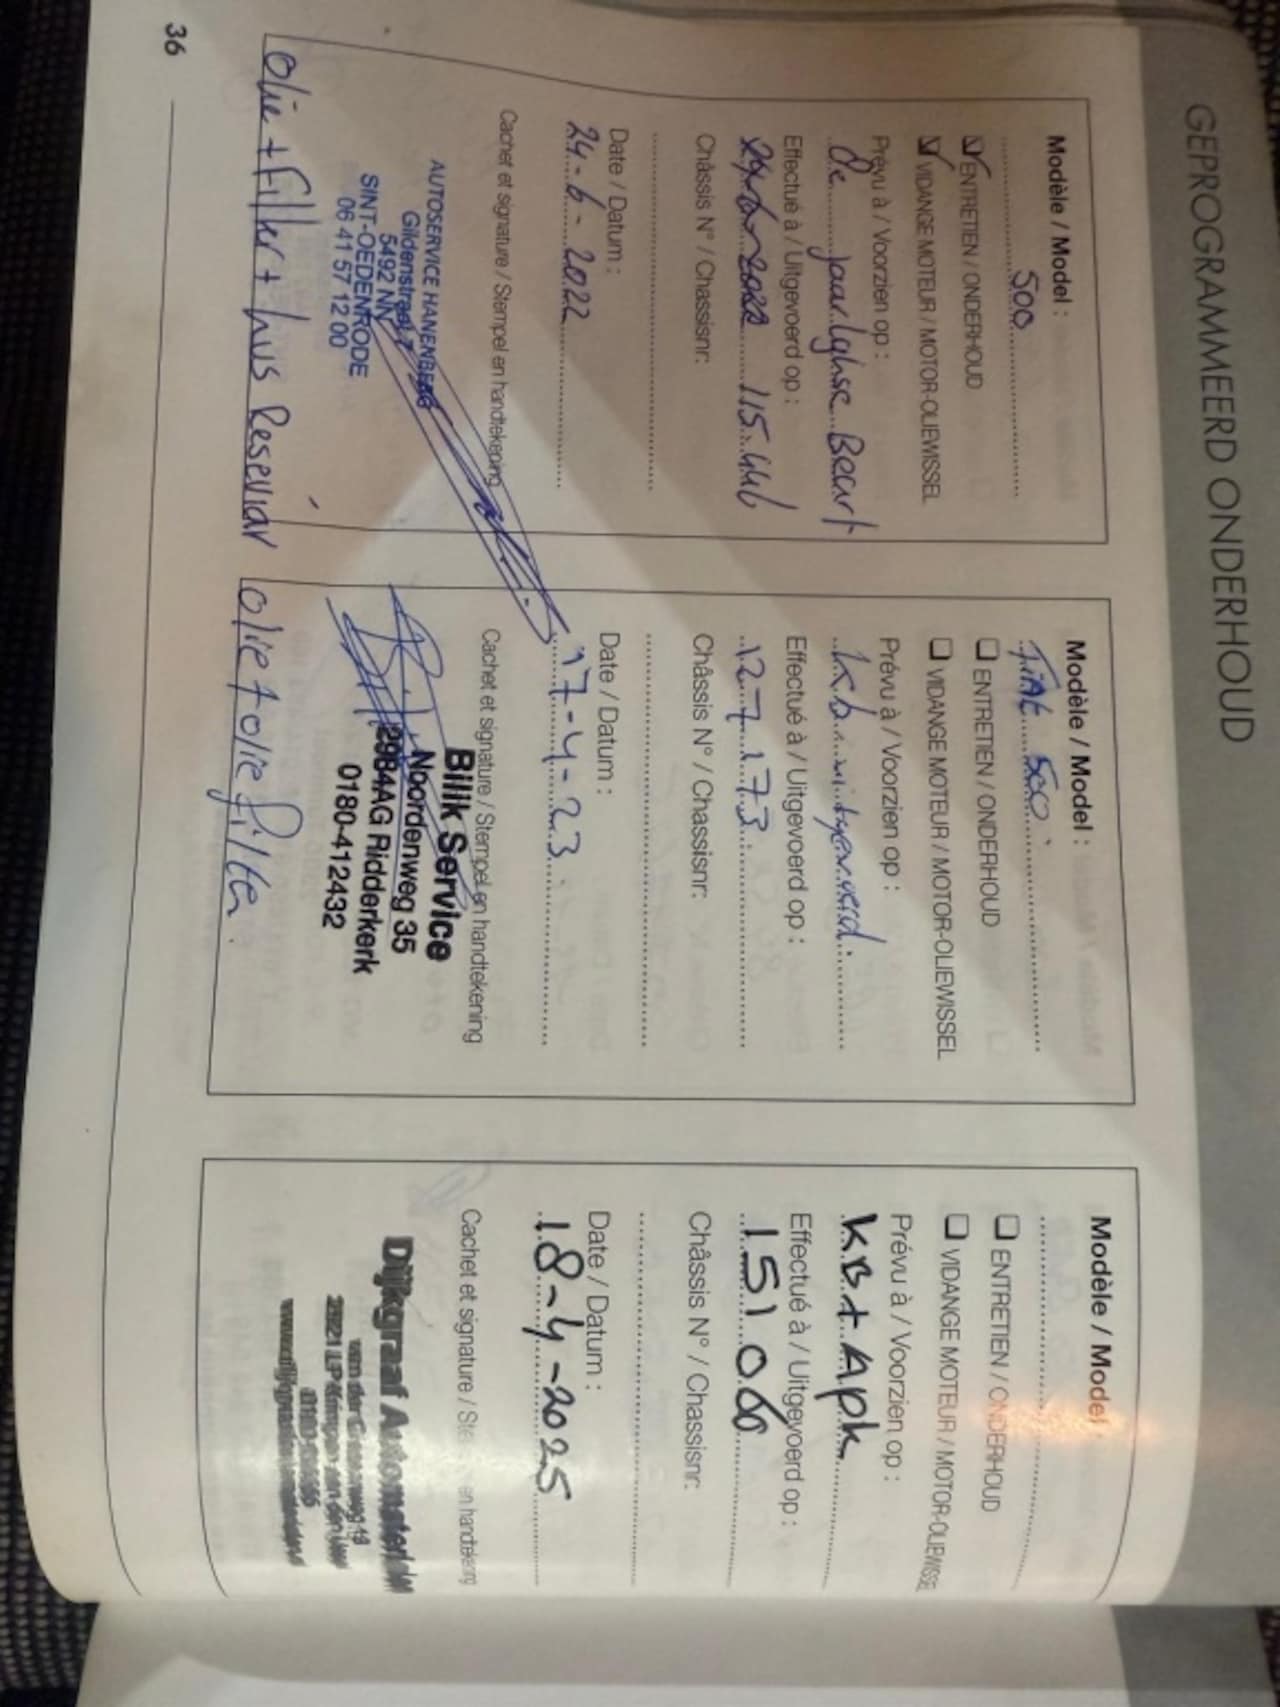 GEPROGRAMMEERD ONDERHOUD
Modèle / Model :
500
☑ ENTRETIEN / ONDERHOUD
☑ VIDANGE MOTEUR / MOTOR-OLIEWISSEL
Prévu à / Voorzien op :
de jaarlykse Beurt
Effectué à / Uitgevoerd op :
115.446
Châssis N° / Chassisnr:
Date / Datum :
24-6-2022
Cachet et signature / Stempel en handtekening
AUTOSERVICE HANENBERG
Gildenstraat 7
5492 NN
SINT-OEDENRODE
06 41 57 12 00
olie + filter + hus Reseviar
Modèle / Model :
Fiat 500
☐ ENTRETIEN / ONDERHOUD
☐ VIDANGE MOTEUR / MOTOR-OLIEWISSEL
Prévu à / Voorzien op :
k.b. uitgevoerd.
Effectué à / Uitgevoerd op :
127.173
Châssis N° / Chassisnr:
Date / Datum :
17-4-23
Cachet et signature / Stempel en handtekening
Bilik Service
Noordenweg 35
2984AG Ridderkerk
0180-412432
olie + olie filter.
Modèle / Model
☐ ENTRETIEN / ONDERHOUD
☐ VIDANGE MOTEUR / MOTOR-OLIEWISSEL
Prévu à / Voorzien op :
KB + Apk
Effectué à / Uitgevoerd op :
151.060
Châssis N° / Chassisnr:
Date / Datum :
18-4-2025
Cachet et signature / Ste en handtekening
Dijkgraaf
36